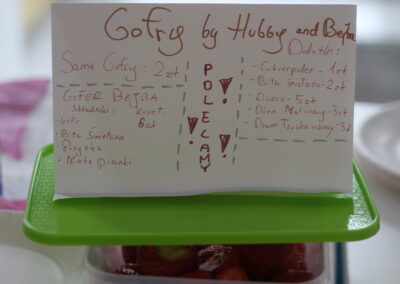 Gofry by Hubby and Bejba
Same Gofry: 2zł
GOFER BEJBA
Składniki: koszt:
- Gofr 8zł
- Bita Śmietana
- Posypka
- Małe pianki
POLECAMY
! ! !
Dodatki:
- Cukierpuder - 1zł
- Bita śmietana - 2zł
- Owoce - 5zł
- Dżem Malinowy - 3zł
- Dżem Truskawkowy - 3zł